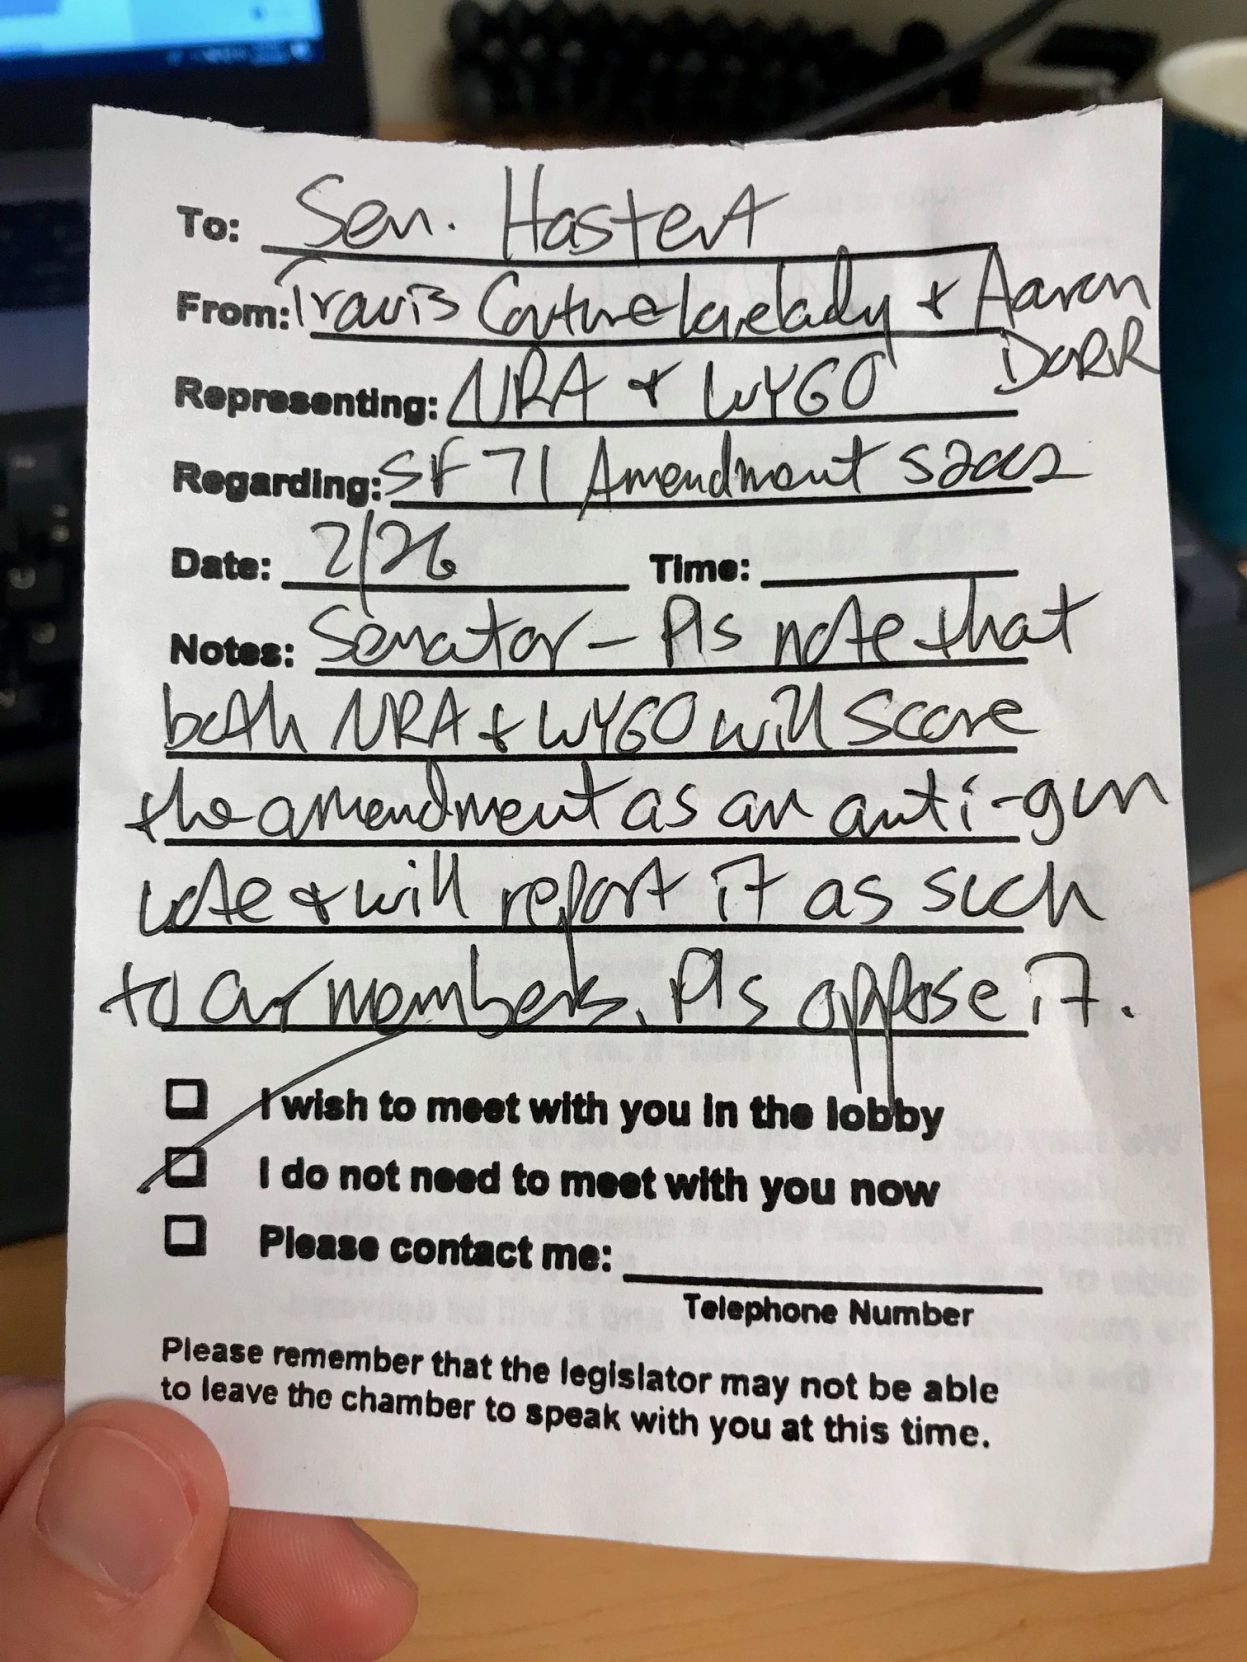 To: Sen. Hastert
From: Travis Couture-Lovelady + Aaron
Dorr
Representing: NRA + WYGO
Regarding: SF 71 Amendment S2002
Date: 2/26 Time:
Notes: Senator - Pls note that
both NRA + WYGO will score
the amendment as an anti-gun
vote + will report it as such
to our members. Pls oppose it.
I wish to meet with you in the lobby
I do not need to meet with you now
Please contact me:
Telephone Number
Please remember that the legislator may not be able
to leave the chamber to speak with you at this time.